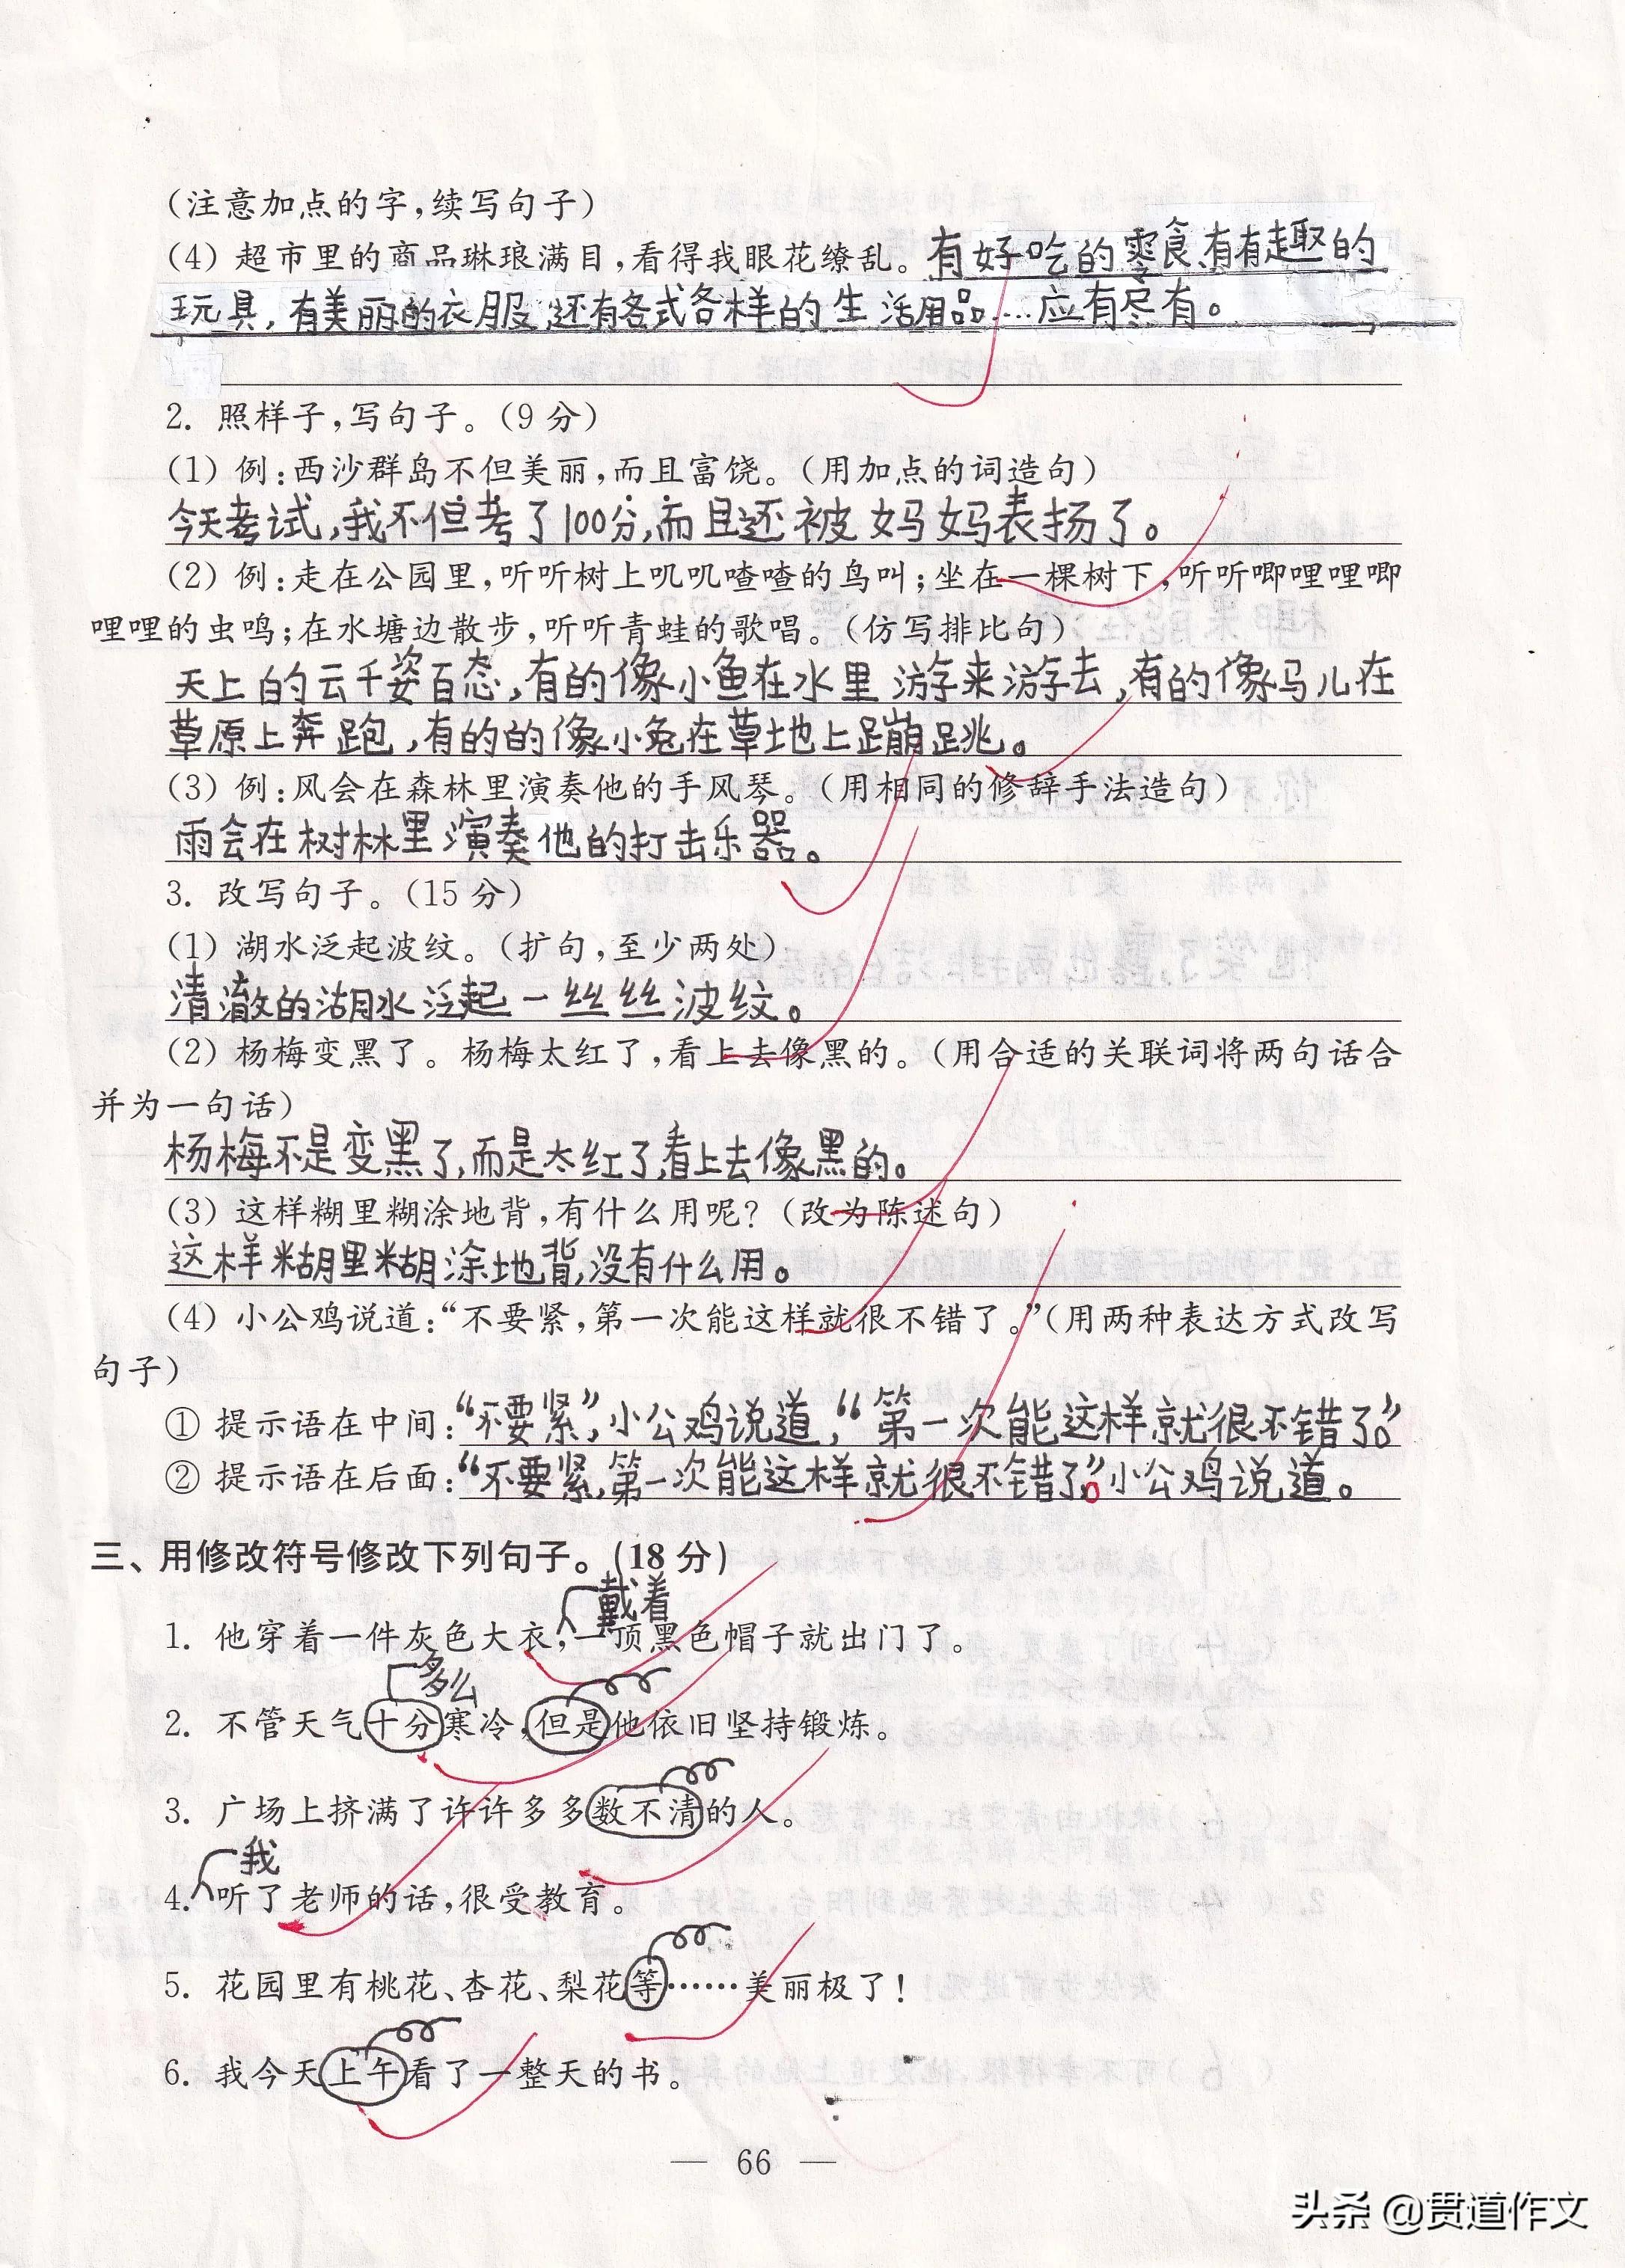 (注意加点的字,续写句子)
(4) 超市里的商品琳琅满目,看得我眼花缭乱。有好吃的零食,有有趣的
玩具,有美丽的衣服,还有各式各样的生活用品……应有尽有。
2. 照样子,写句子。(9 分)
(1) 例:西沙群岛不但美丽,而且富饶。(用加点的词造句)
今天考试,我不但考了100分,而且还被妈妈表扬了。
(2) 例:走在公园里,听听树上叽叽喳喳的鸟叫;坐在一棵树下,听听唧哩哩唧
哩哩的虫鸣;在水塘边散步,听听青蛙的歌唱。(仿写排比句)
天上的云千姿百态,有的像小鱼在水里游来游去,有的像马儿在
草原上奔跑,有的的像小兔在草地上蹦跳。
(3) 例:风会在森林里演奏他的手风琴。(用相同的修辞手法造句)
雨会在树林里演奏他的打击乐器。
3. 改写句子。(15 分)
(1) 湖水泛起波纹。(扩句,至少两处)
清澈的湖水泛起一丝丝波纹。
(2) 杨梅变黑了。杨梅太红了,看上去像黑的。(用合适的关联词将两句话合
并为一句话)
杨梅不是变黑了,而是太红了,看上去像黑的。
(3) 这样糊里糊涂地背,有什么用呢?(改为陈述句)
这样糊里糊涂地背,没有什么用。
(4) 小公鸡说道:“不要紧,第一次能这样就很不错了。”(用两种表达方式改写
句子)
① 提示语在中间:“不要紧”,小公鸡说道,“第一次能这样就很不错了。”
② 提示语在后面:“不要紧,第一次能这样就很不错了。”小公鸡说道。
三、用修改符号修改下列句子。(18 分)
戴着
1. 他穿着一件灰色大衣,一顶黑色帽子就出门了。
多么
2. 不管天气十分寒冷,但是他依旧坚持锻炼。
3. 广场上挤满了许许多多数不清的人。
我
4. 听了老师的话,很受教育。
5. 花园里有桃花、杏花、梨花等……美丽极了!
6. 我今天上午看了一整天的书。
— 66 —
头条 @贯道作文